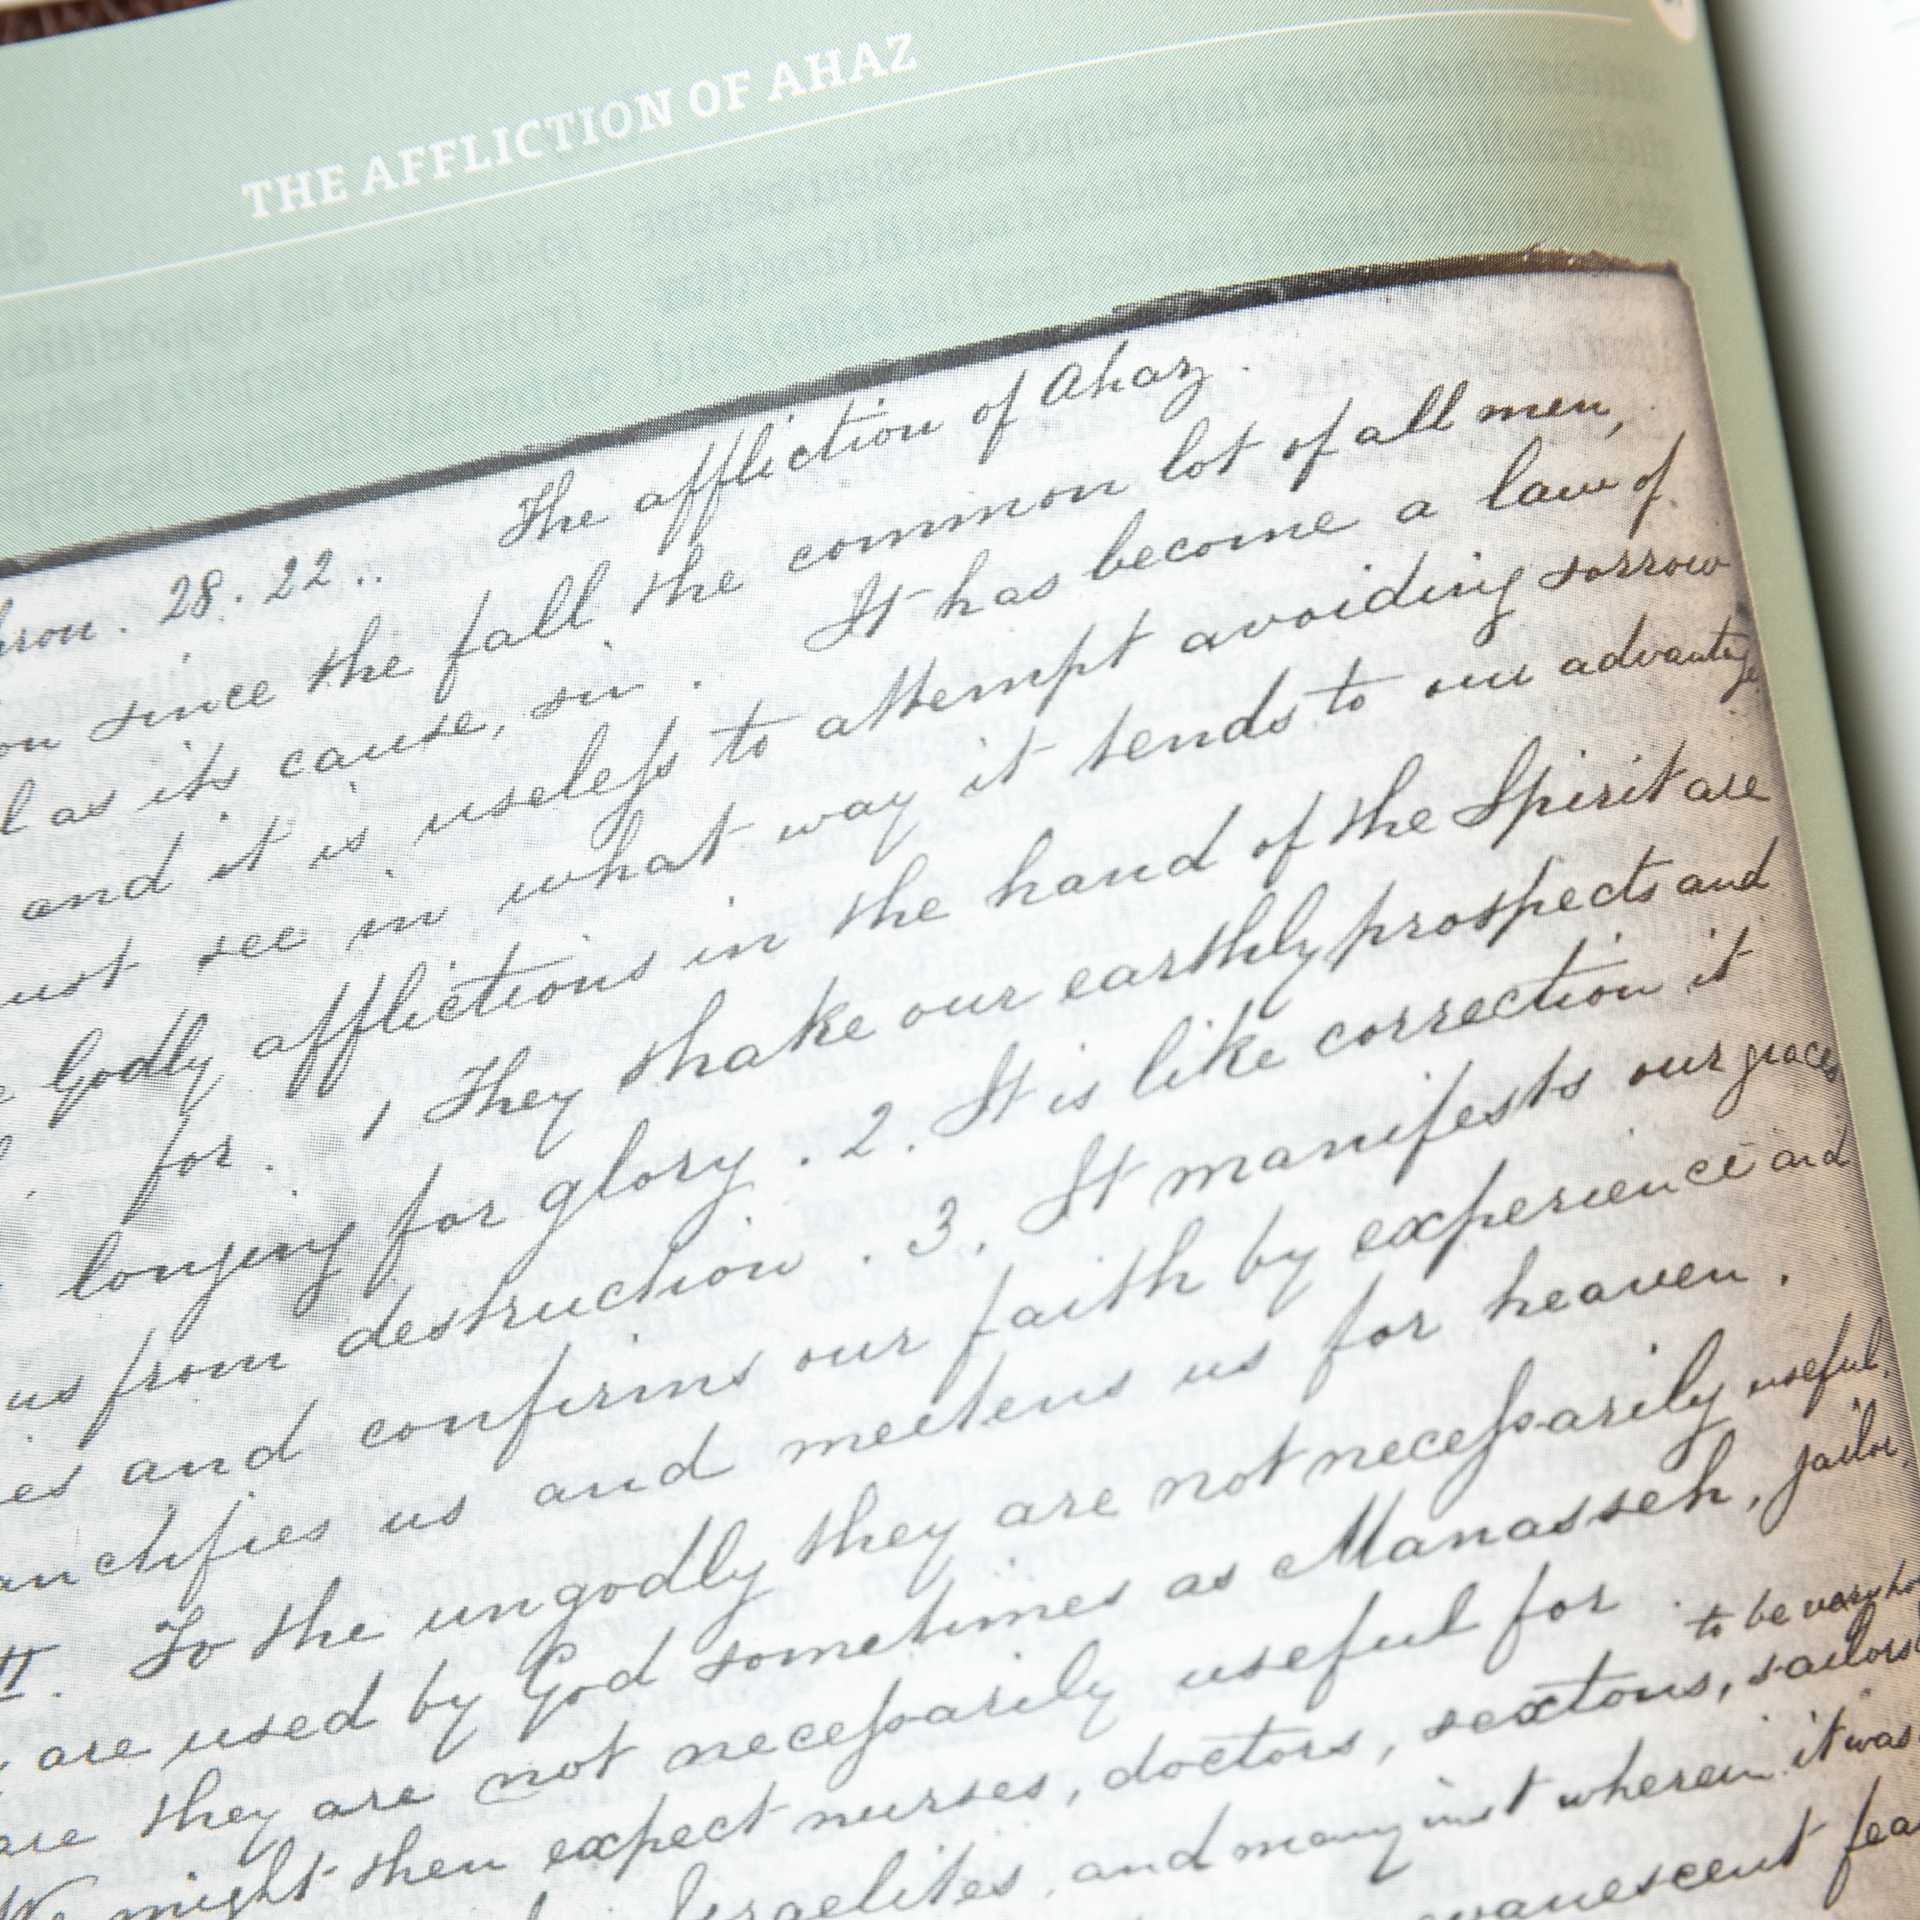 THE AFFLICTION OF AHAZ
28. 22.. The affliction of Ahaz.
since the fall the common lot of all men,
as its cause, sin. It has become a law of
and it is useless to attempt avoiding sorrow
see in what way it tends to our advantage
Godly afflictions in the hand of the Spirit are
for. 1 They shake our earthly prospects and
longing for glory. 2. It is like correction it
us from destruction. 3. It manifests our graces
and confirms our faith by experience and
us and meetens us for heaven.
II. To the ungodly they are not necessarily useful,
are used by God sometimes as Manasseh, jailor,
they are not necessarily useful for.
to be very
We might then expect nurses, doctors, sextons, sailors
Israelites, and many inst wherein it was
evanescent